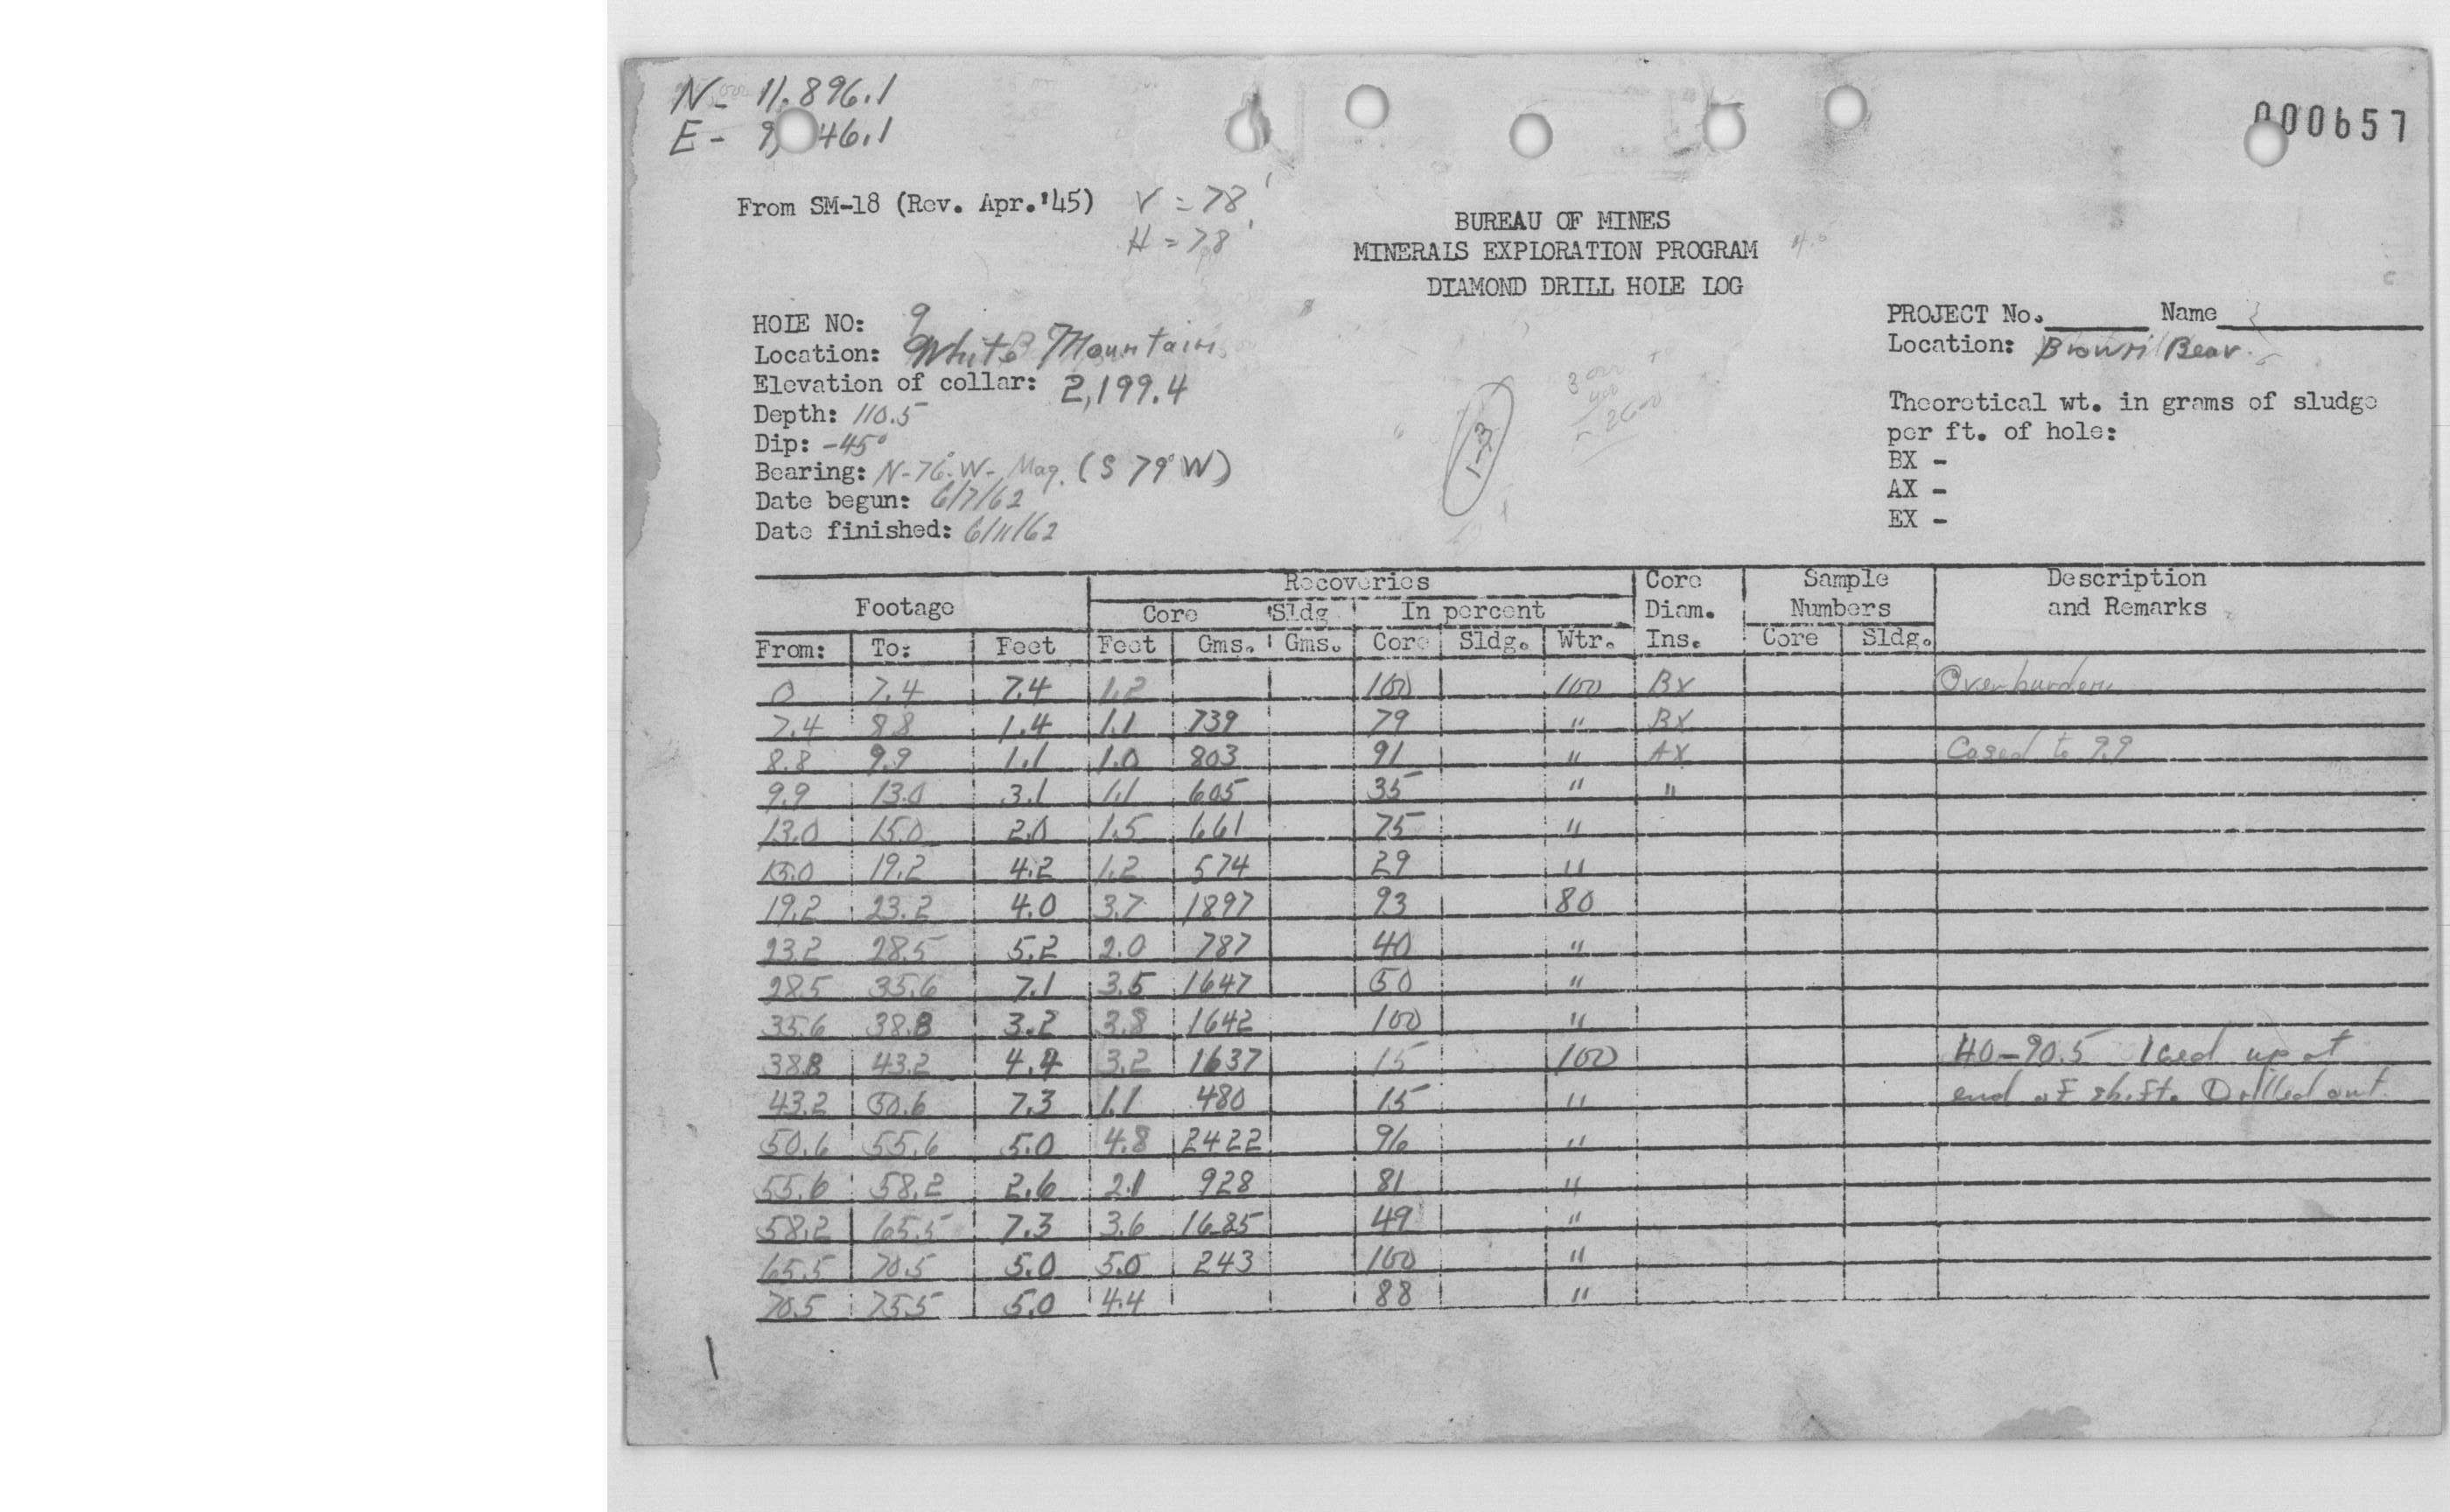 N- 11,896.1
000657
E- 9, 46.1
From SM-18 (Rev. Apr.'45) V = 78'
H = 78'
BUREAU OF MINES
MINERALS EXPLORATION PROGRAM
DIAMOND DRILL HOLE LOG
HOLE NO: 9
Location: White Mountain
Elevation of collar: 2,199.4
Depth: 110.5
Dip: -45°
Bearing: N-76°W- Mag. (S 79° W)
Date begun: 6/7/62
Date finished: 6/11/62
PROJECT No. Name
Location: Brown Bear
Theoretical wt. in grams of sludge
per ft. of hole:
BX -
AX -
EX -
1-3
Footage Recoveries Core Diam. Ins. Sample Numbers Description and Remarks
Core Sldg In percent
From: To: Feet Feet Gms. Gms. Core Sldg. Wtr. Core Sldg.
0 7.4 7.4 1.2 100 100 BX Overburden
7.4 8.8 1.4 1.1 739 79 " BX
8.8 9.9 1.1 1.0 803 91 " AX Cased to 9.9
9.9 13.0 3.1 1.1 605 35 " "
13.0 15.0 2.0 1.5 661 75 "
15.0 19.2 4.2 1.2 574 29 "
19.2 23.2 4.0 3.7 1897 93 80
23.2 28.5 5.2 2.0 787 40 "
28.5 35.6 7.1 3.5 1647 50 "
35.6 38.8 3.2 3.8 1642 100 "
38.8 43.2 4.4 3.2 1637 15 100 40-90.5 Iced up at
43.2 50.6 7.3 1.1 480 15 " end of shift. Drilled out.
50.6 55.6 5.0 4.8 2422 96 "
55.6 58.2 2.6 2.1 928 81 "
58.2 65.5 7.3 3.6 1685 49 "
65.5 70.5 5.0 5.0 243 100 "
70.5 75.5 5.0 4.4 88 "